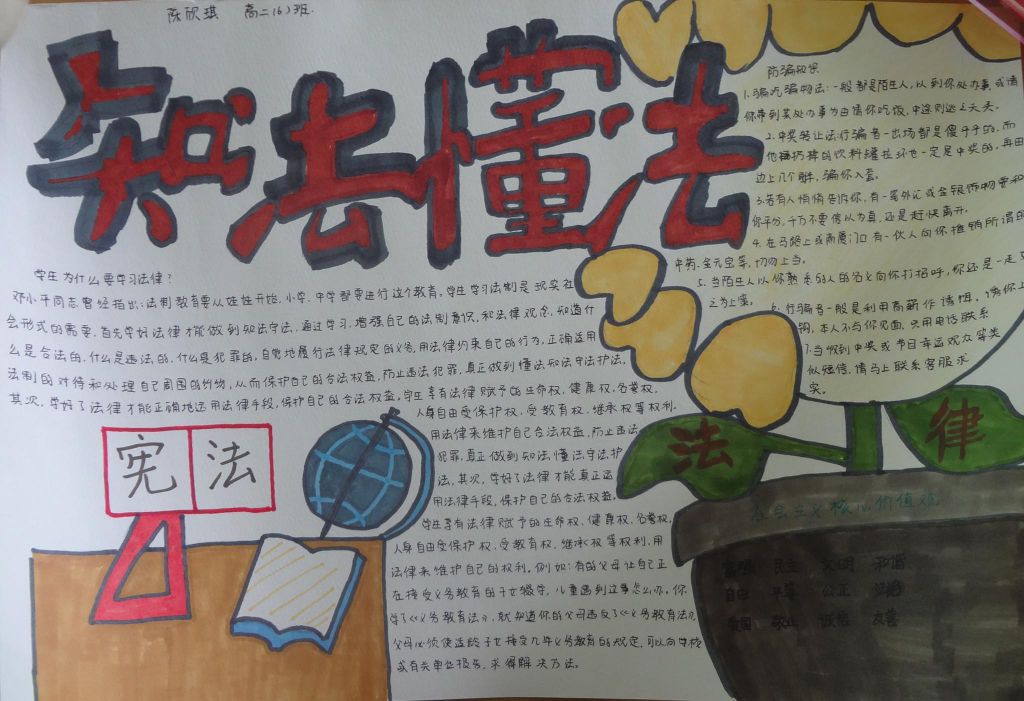 陈欣琪 高二(6)班.
知法懂法
防骗知识
学生为什么要学习法律?
邓小平同志曾经指出:法制教育要从娃娃开始,小学、中学都要进行这个教育,学生学习法制是现实社
会形式的需要,首先学好法律才能做到知法守法,通过学习,增强自己的法制意识,和法律观念,知道什
么是合法的,什么是违法的,什么是犯罪的,自觉地履行法律规定的义务,用法律约束自己的行为,正确适用
法制的对待和处理自己周围的事物,从而保护自己的合法权益,防止违法犯罪,真正做到懂法知法守法护法,
其次,学好了法律才能正确地运用法律手段,保护自己的合法权益,学生享有法律赋予的生命权、健康权、名誉权、
人身自由受保护权、受教育权、继承权等权利.
用法律来维护自己合法权益,防止违法
犯罪,真正做到知法懂法守法护
法,其次,学好了法律才能真正运
用法律手段,保护自己的合法权益,
学生享有法律赋予的生命权、健康权、名誉权、
人身自由受保护权、受教育权、继承权等权利,用
法律来维护自己的权利,例如:有的父母让自己正
在接受义务教育的子女辍学,儿童遇到这事怎么办,你
学了《义务教育法》,就知道你的父母违反了《义务教育法》,
父母必须使适龄子女接受九年义务教育的规定,可以向学校
或有关单位报告,求得解决方法。
1.骗吃骗物法:一般都是陌生人,以到你处办事或请
你带到某处办事为由请你吃饭,中途则逃之夭夭.
2.中奖转让法:行骗者一出场都是傻乎乎的,而
他捅扔掉的饮料罐拉环也一定是中奖的,再由
边上几个帮,骗你入套.
3.若有人悄悄告诉你,有一笔外汇或金银饰物要和
你平分,千万不要信以为真,还是赶快离开.
4.在马路上或商厦门口有一伙人向你推销所谓的
中药、金元宝等,切勿上当。
5.当陌生人以你熟悉的人的名义向你打招呼,你还是一走
之为上策。
6.行骗者一般是利用高薪作诱饵,诱你上
钩,本人不与你见面,只用电话联系
7.当收到中奖或节目幸运观众等类
似短信,请马上联系客服求
实。
宪法
法 律
社会主义核心价值观
富强 民主 文明 和谐
自由 平等 公正 法治
爱国 敬业 诚信 友善